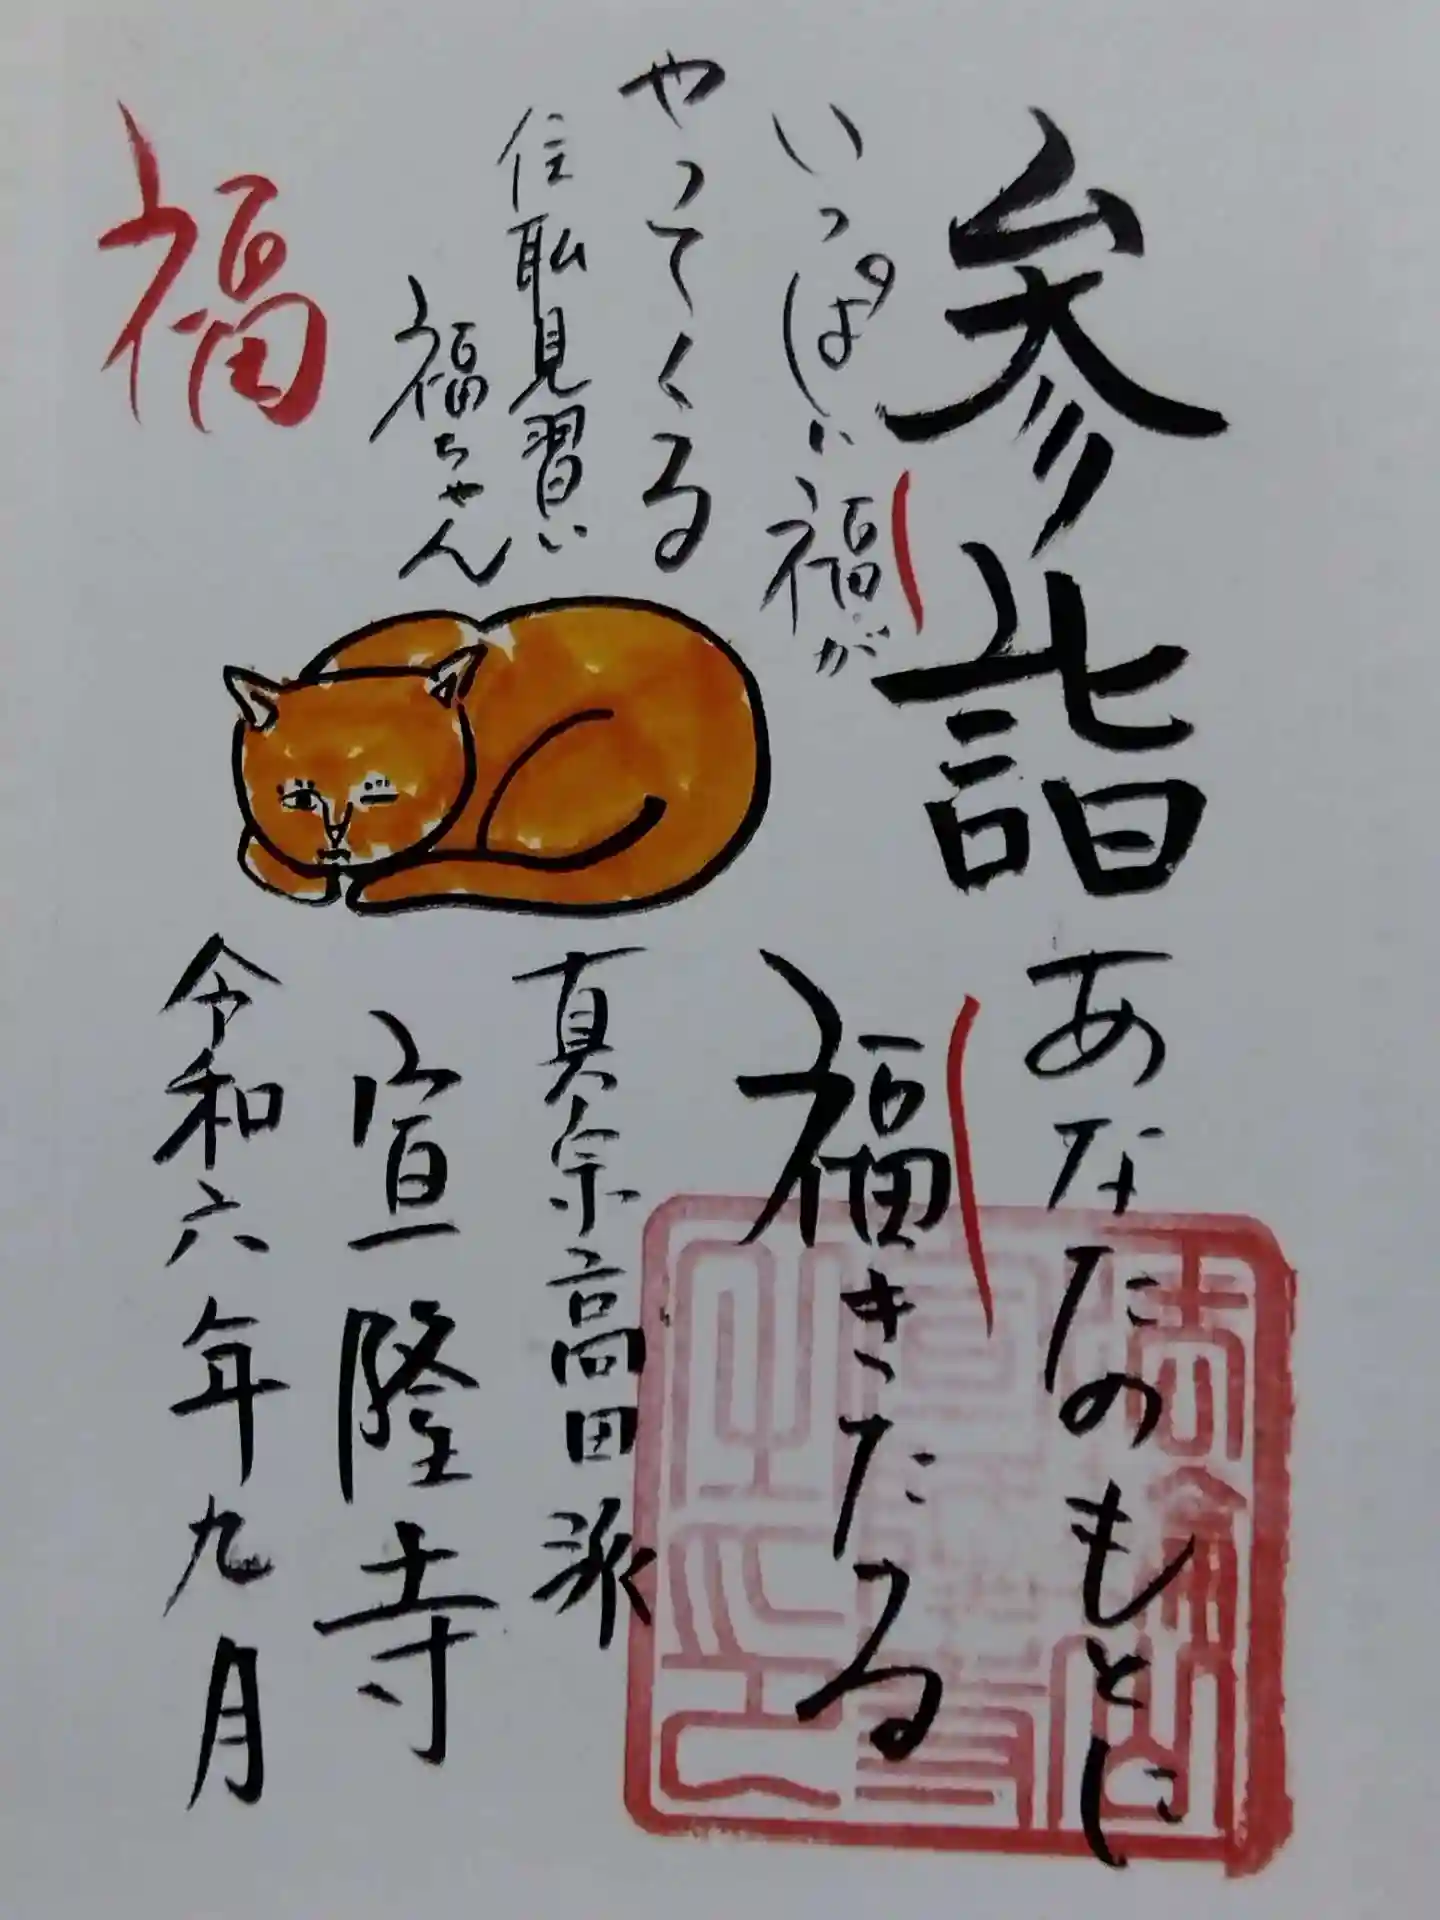 参詣
あなたのもとに
福きたる
いっぱい福が
やってくる
住職見習い
福ちゃん
真宗高田派
宣隆寺
令和六年九月
福